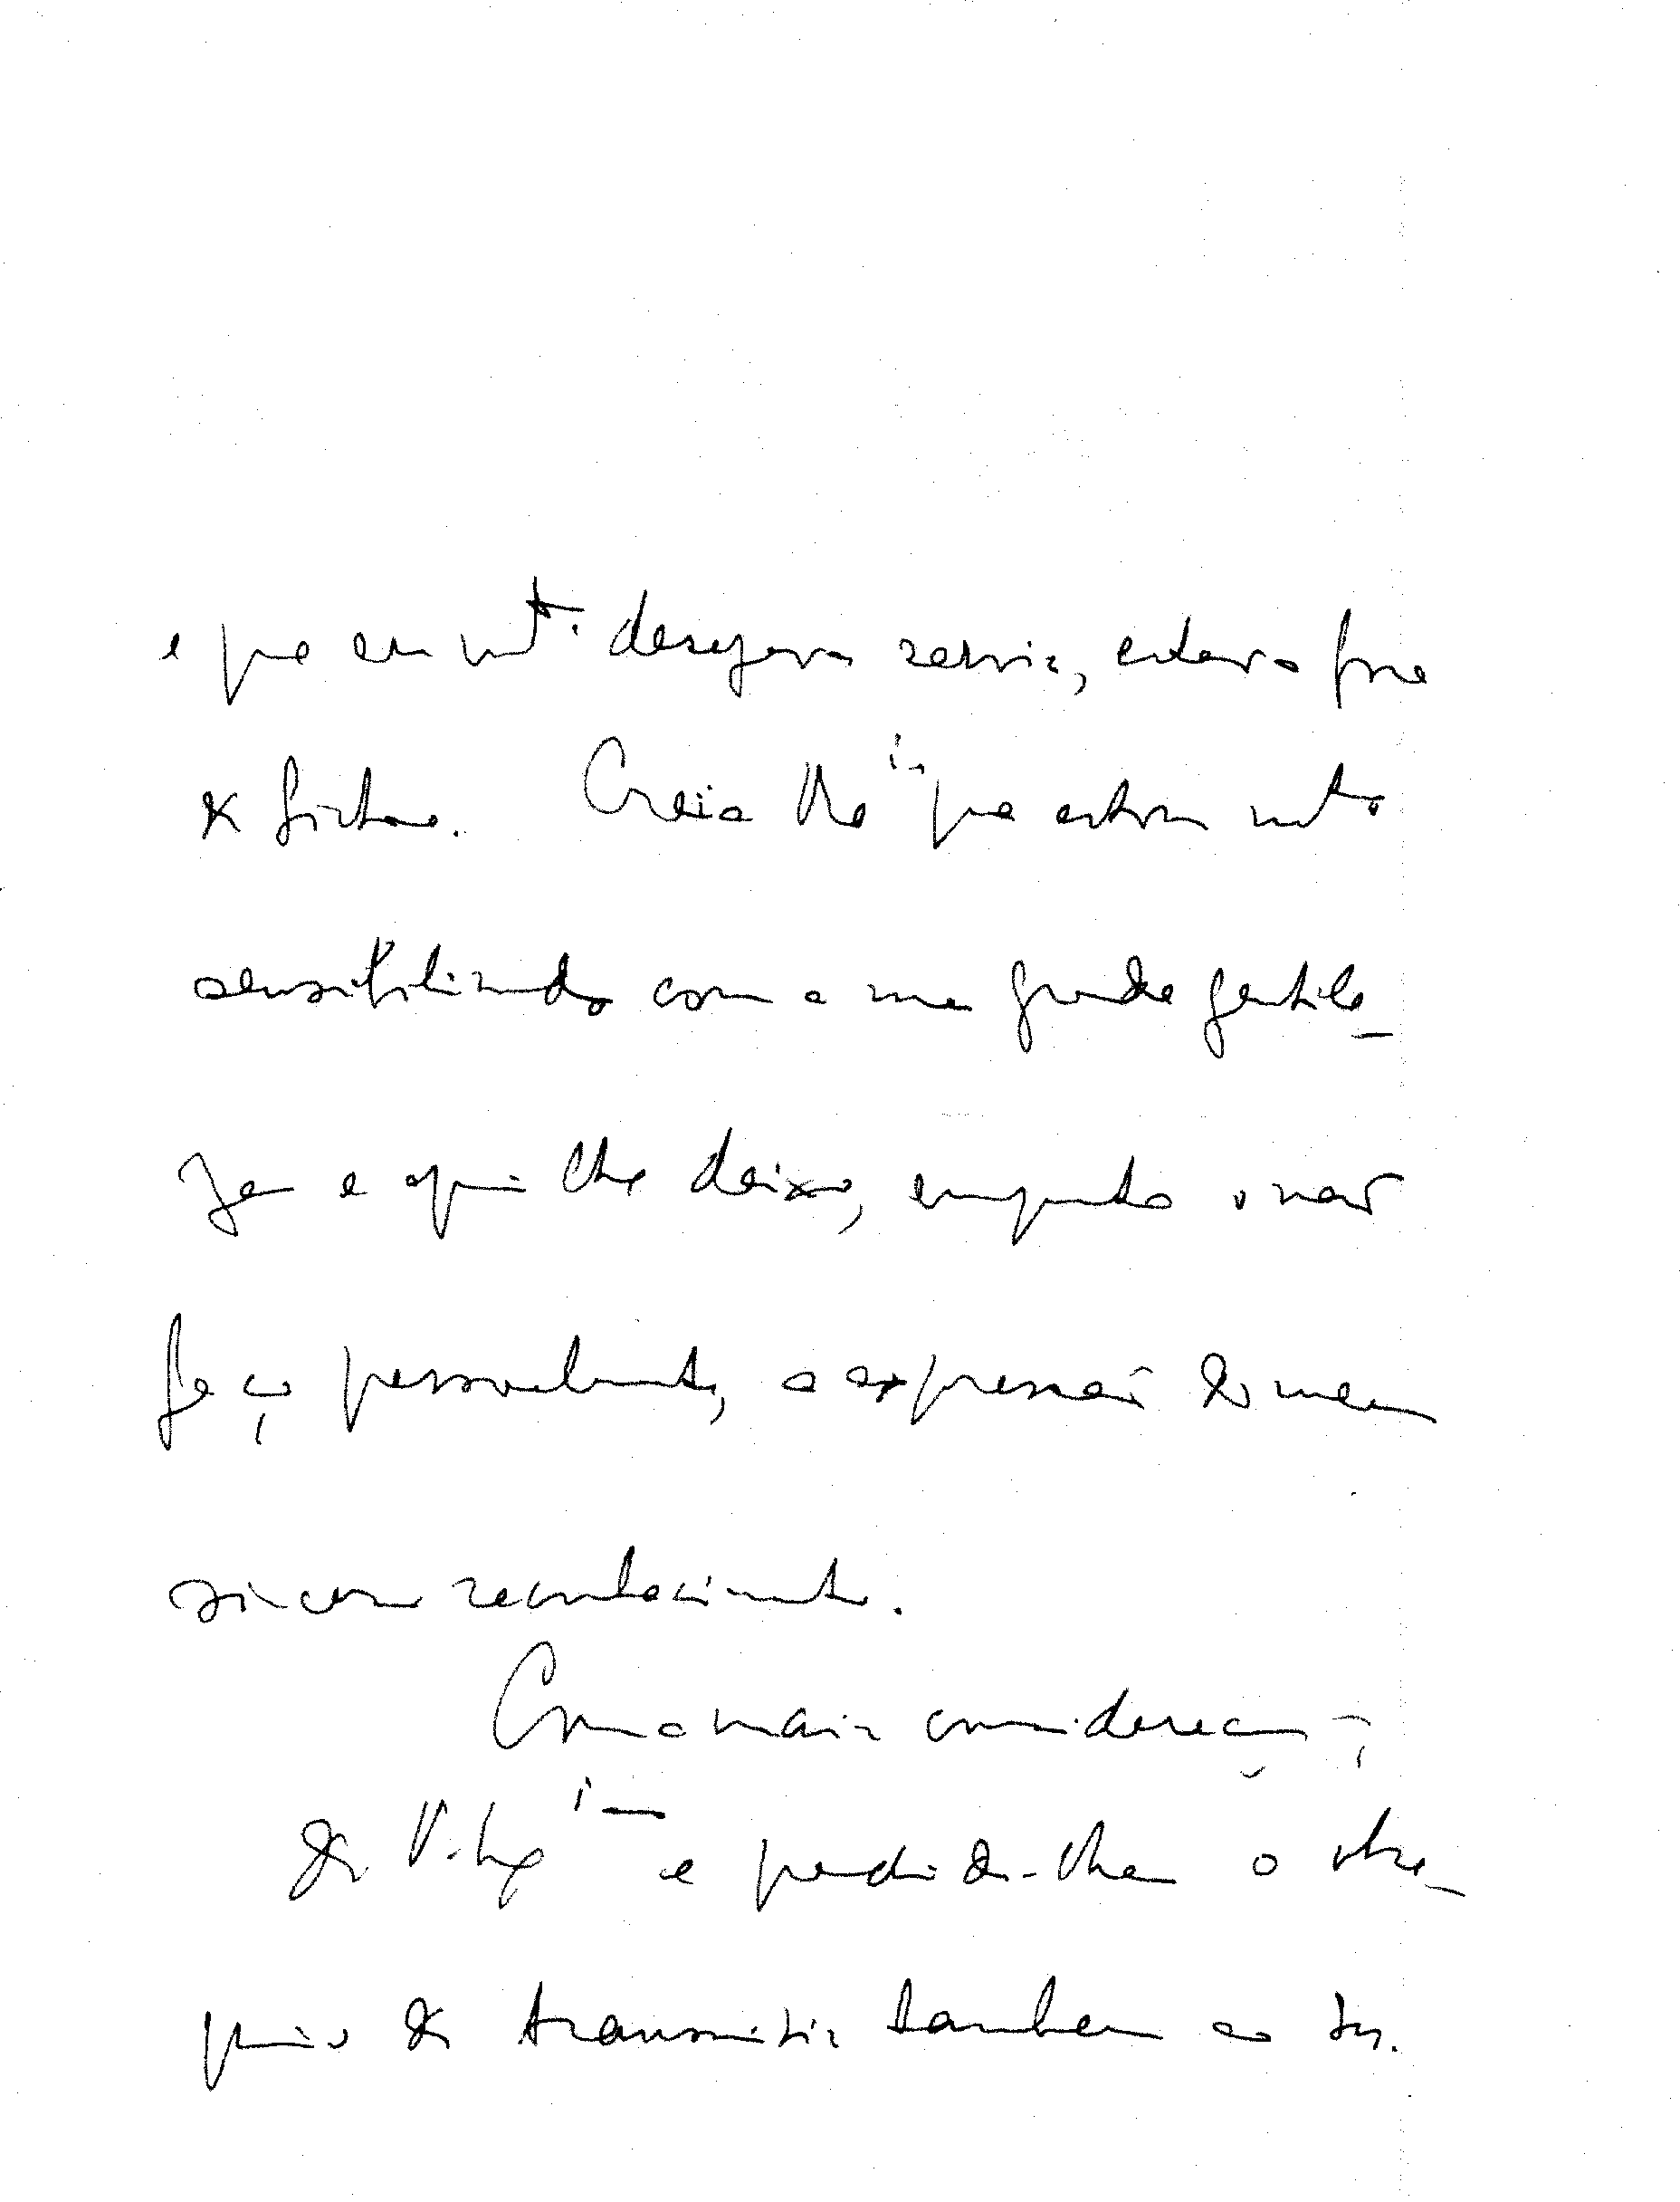 e que eu mt.º desejava servir, estava fora
de Lisboa. Creia V.Exª que estou mto
sensibilizado com a sua grande gentile-
za e aqui lhe deixo, enquanto o não
faço pessoalmente, a expressão do meu
sincero reconhecimento.
Com a mais consideração
de V. Exª e pedindo-lhe o obse-
quio de transmitir tambem ao Sr.